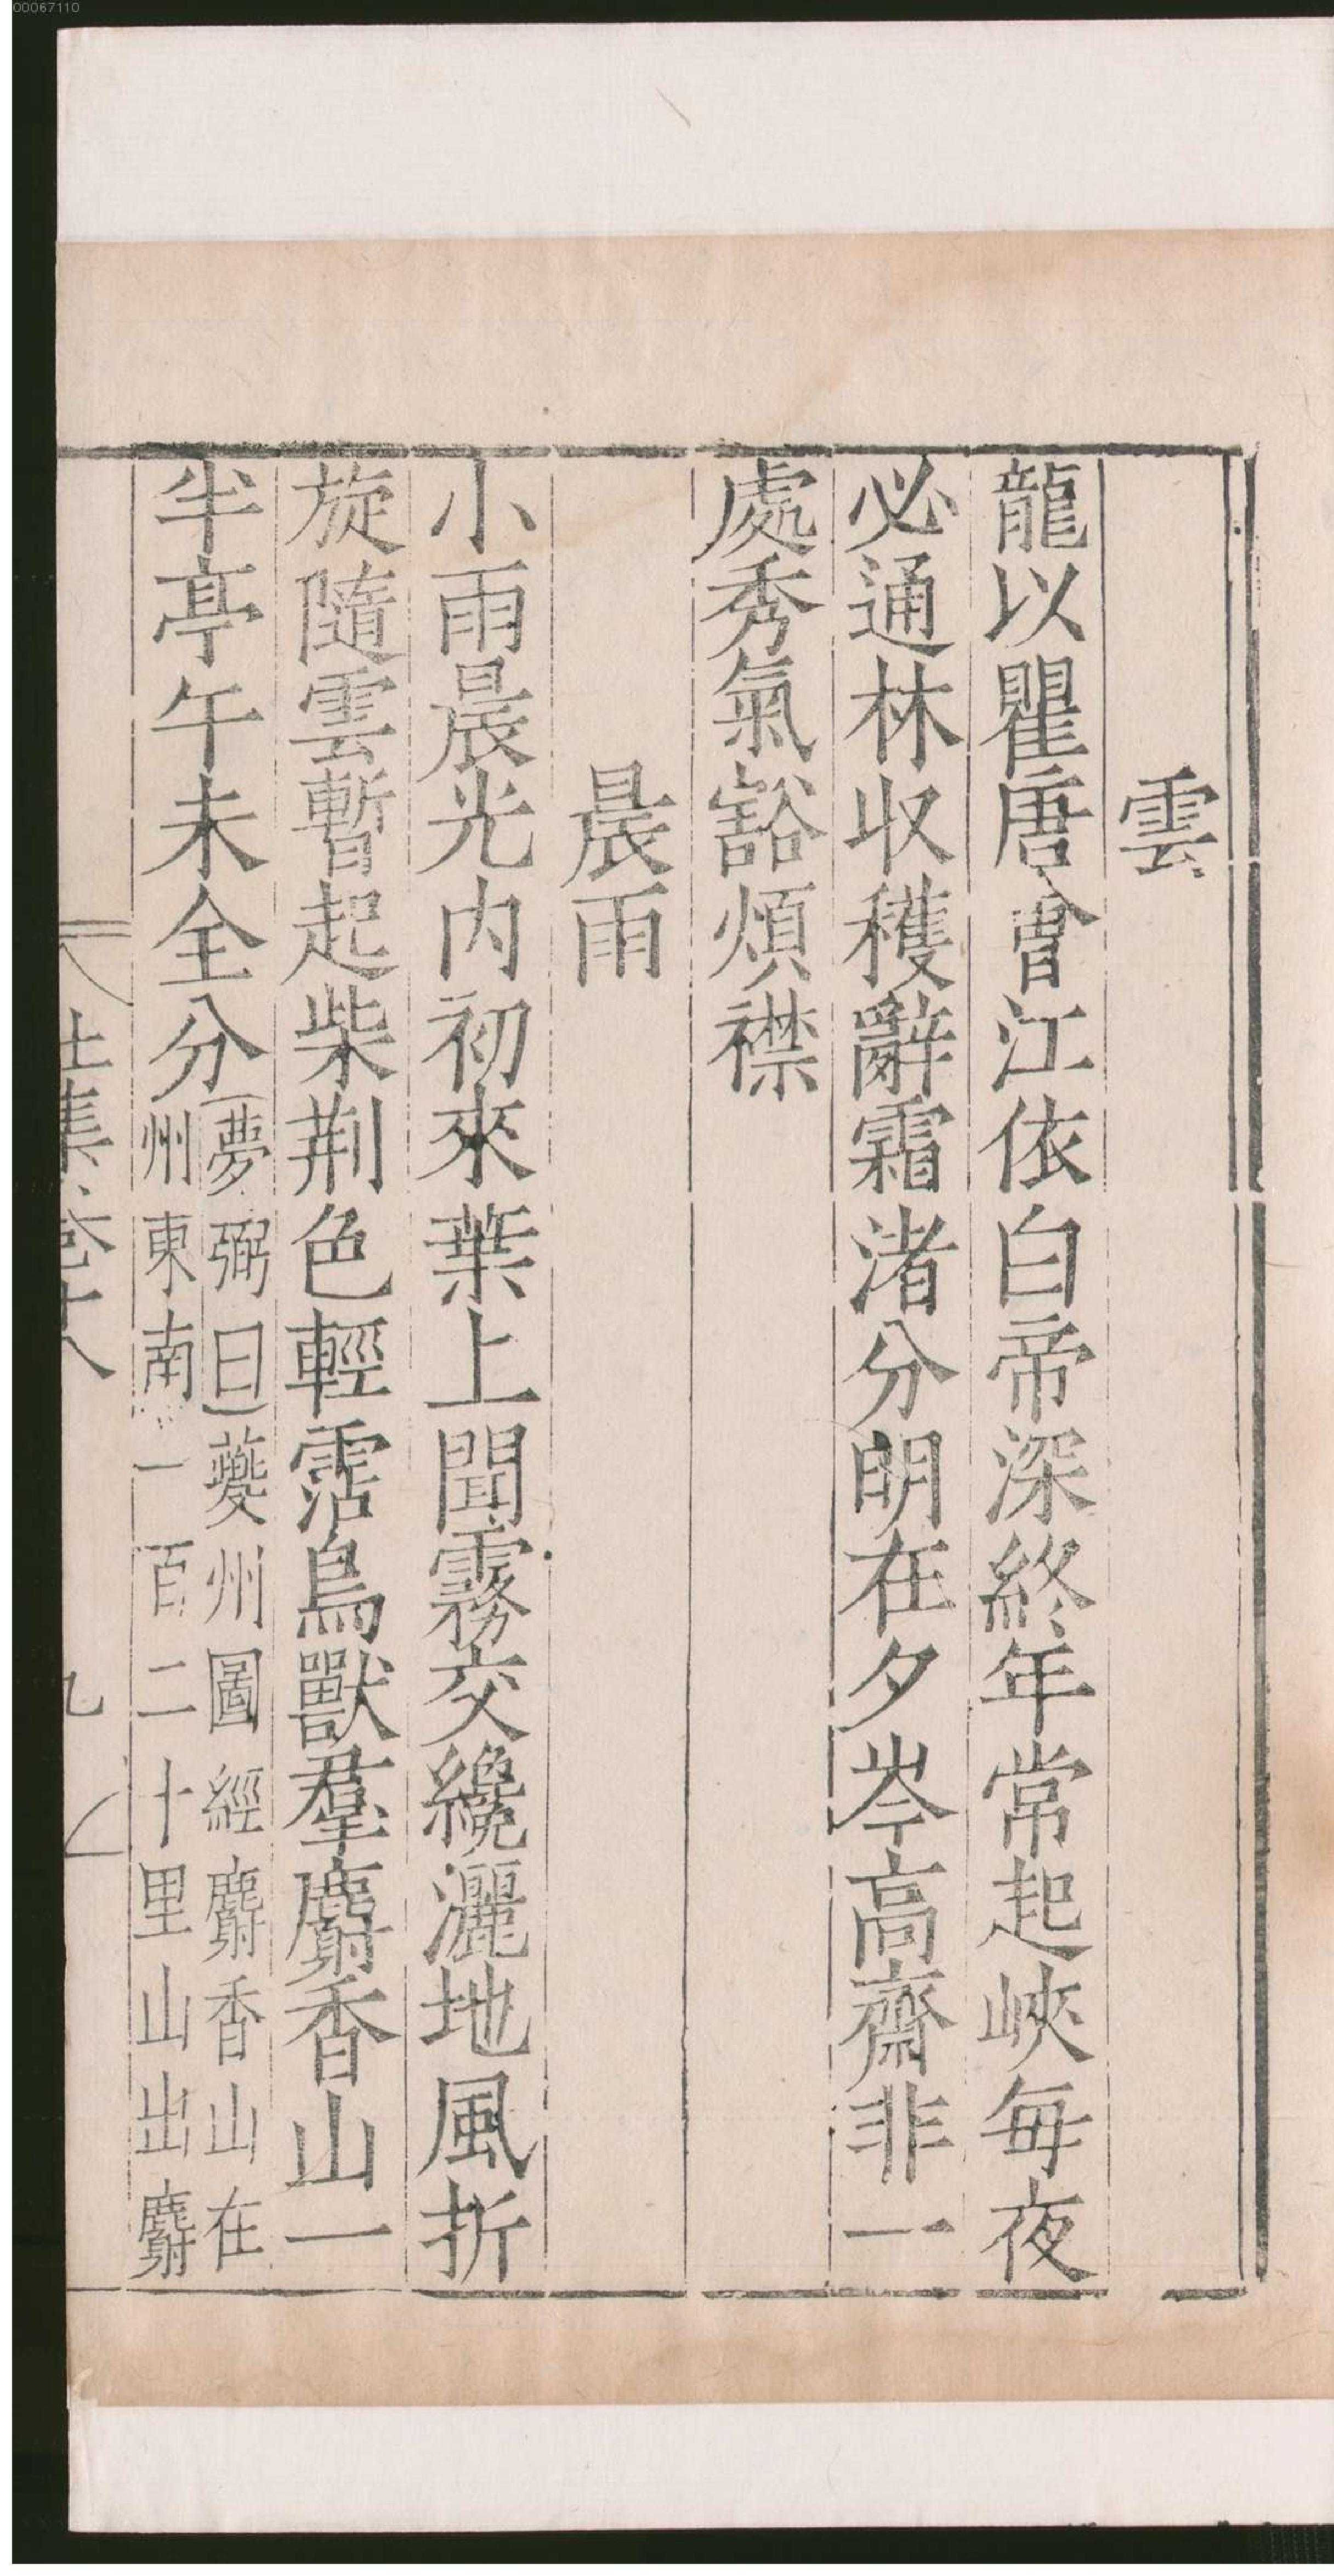 00067110
雲
龍以瞿唐會江依白帝深終年常起峽每夜
必通林收穫辭霜渚分明在夕岑高齋非一
處秀氣豁煩襟
晨雨
小雨晨光内初來葉上聞霧交纔灑地風折
旋隨雲暫起柴荆色輕霑鳥獸羣麝香山一
半亭午未全分
夢弼曰夔州圖經麝香山在
州東南一百二十里山出麝
杜集卷十八
九